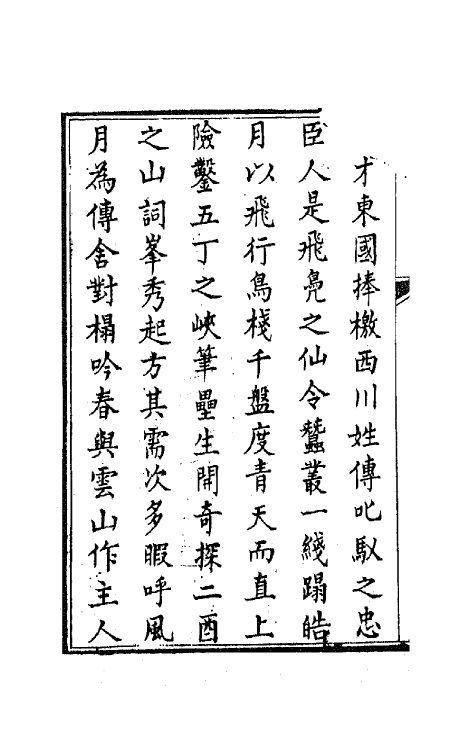 才東國捧檄西川姓傳叱馭之忠
臣人是飛鳧之仙令蠶叢一綫蹋皓
月以飛行鳥棧千盤度青天而直上
險鑿五丁之峽筆壘生開奇探二酉
之山詞峯秀起方其需次多暇呼風
月為傳舍對榻吟春與雲山作主人